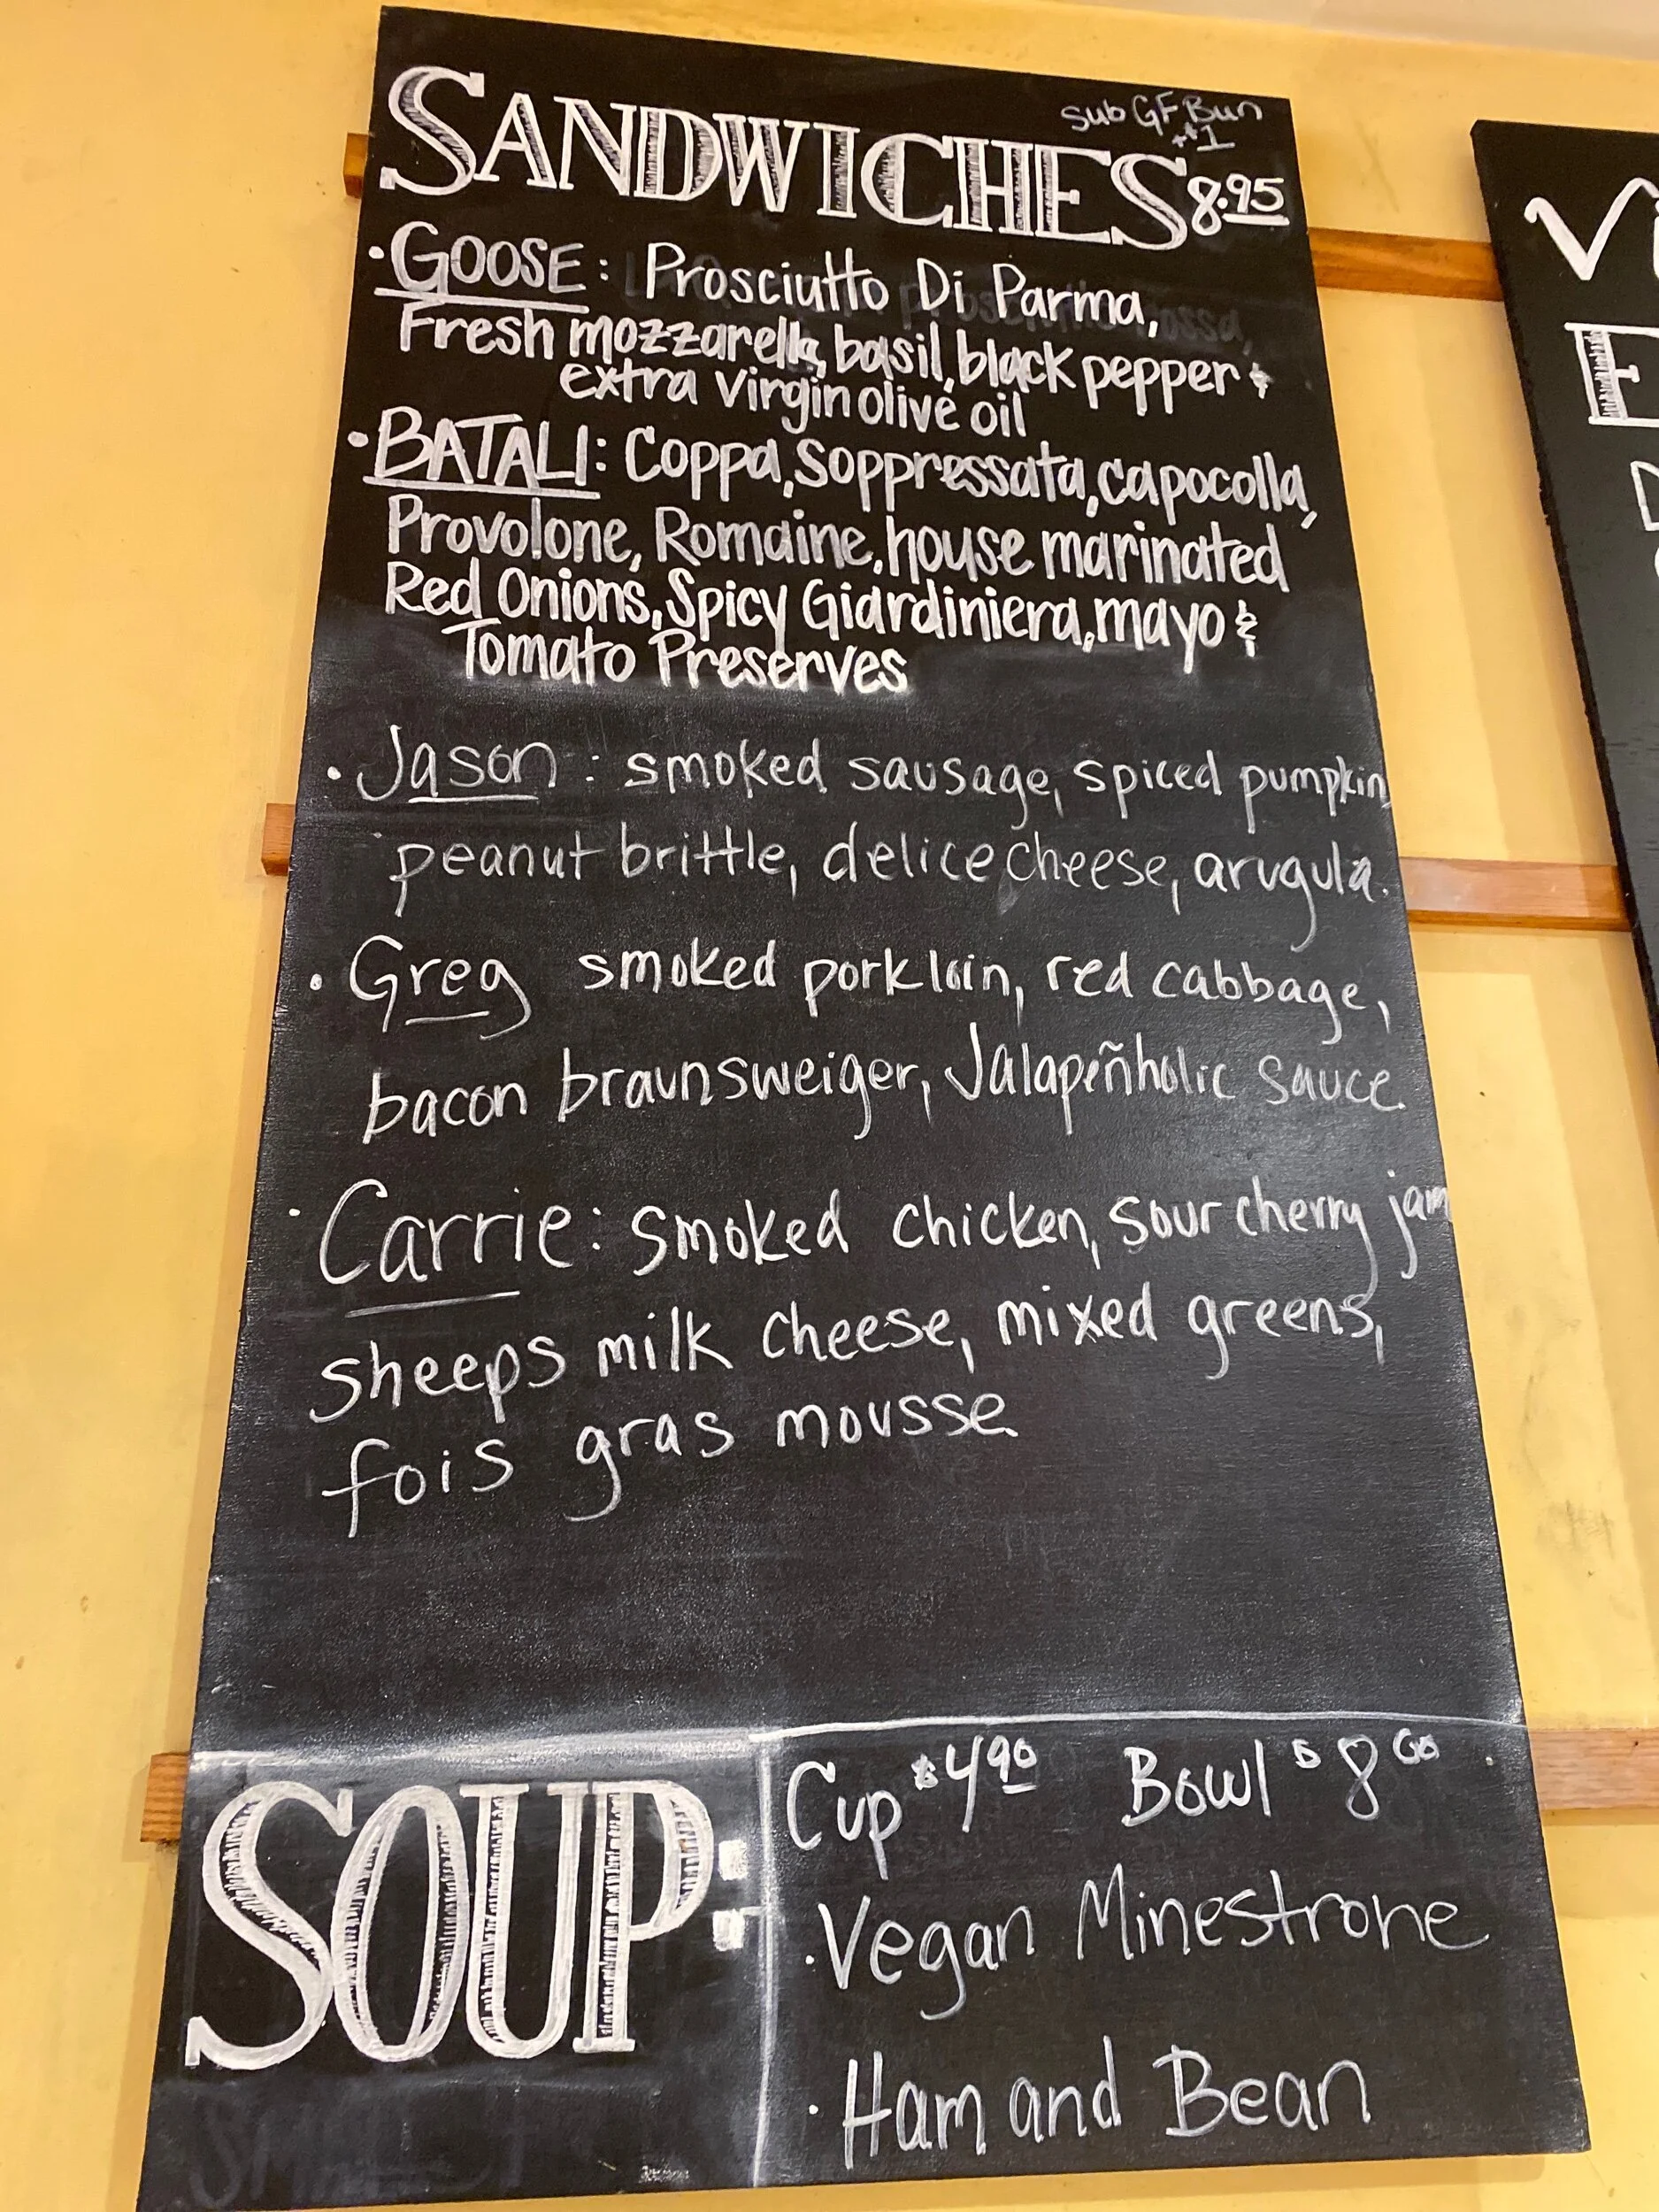 Sub GF Bun
+$1
SANDWICHES 8.95
• GOOSE: Prosciutto Di Parma,
Fresh mozzarella, basil, black pepper &
extra virgin olive oil
• BATALI: Coppa, Soppressata, capocolla,
Provolone, Romaine, house marinated
Red Onions, Spicy Giardiniera, mayo &
Tomato Preserves
• Jason: smoked sausage, spiced pumpkin
peanut brittle, delice cheese, arugula.
• Greg smoked pork loin, red cabbage,
bacon braunsweiger, Jalapeñholic sauce
• Carrie: smoked chicken, sour cherry jam
sheeps milk cheese, mixed greens,
fois gras mousse
SOUP:
Cup $4.90 Bowl $8
• Vegan Minestrone
• Ham and Bean